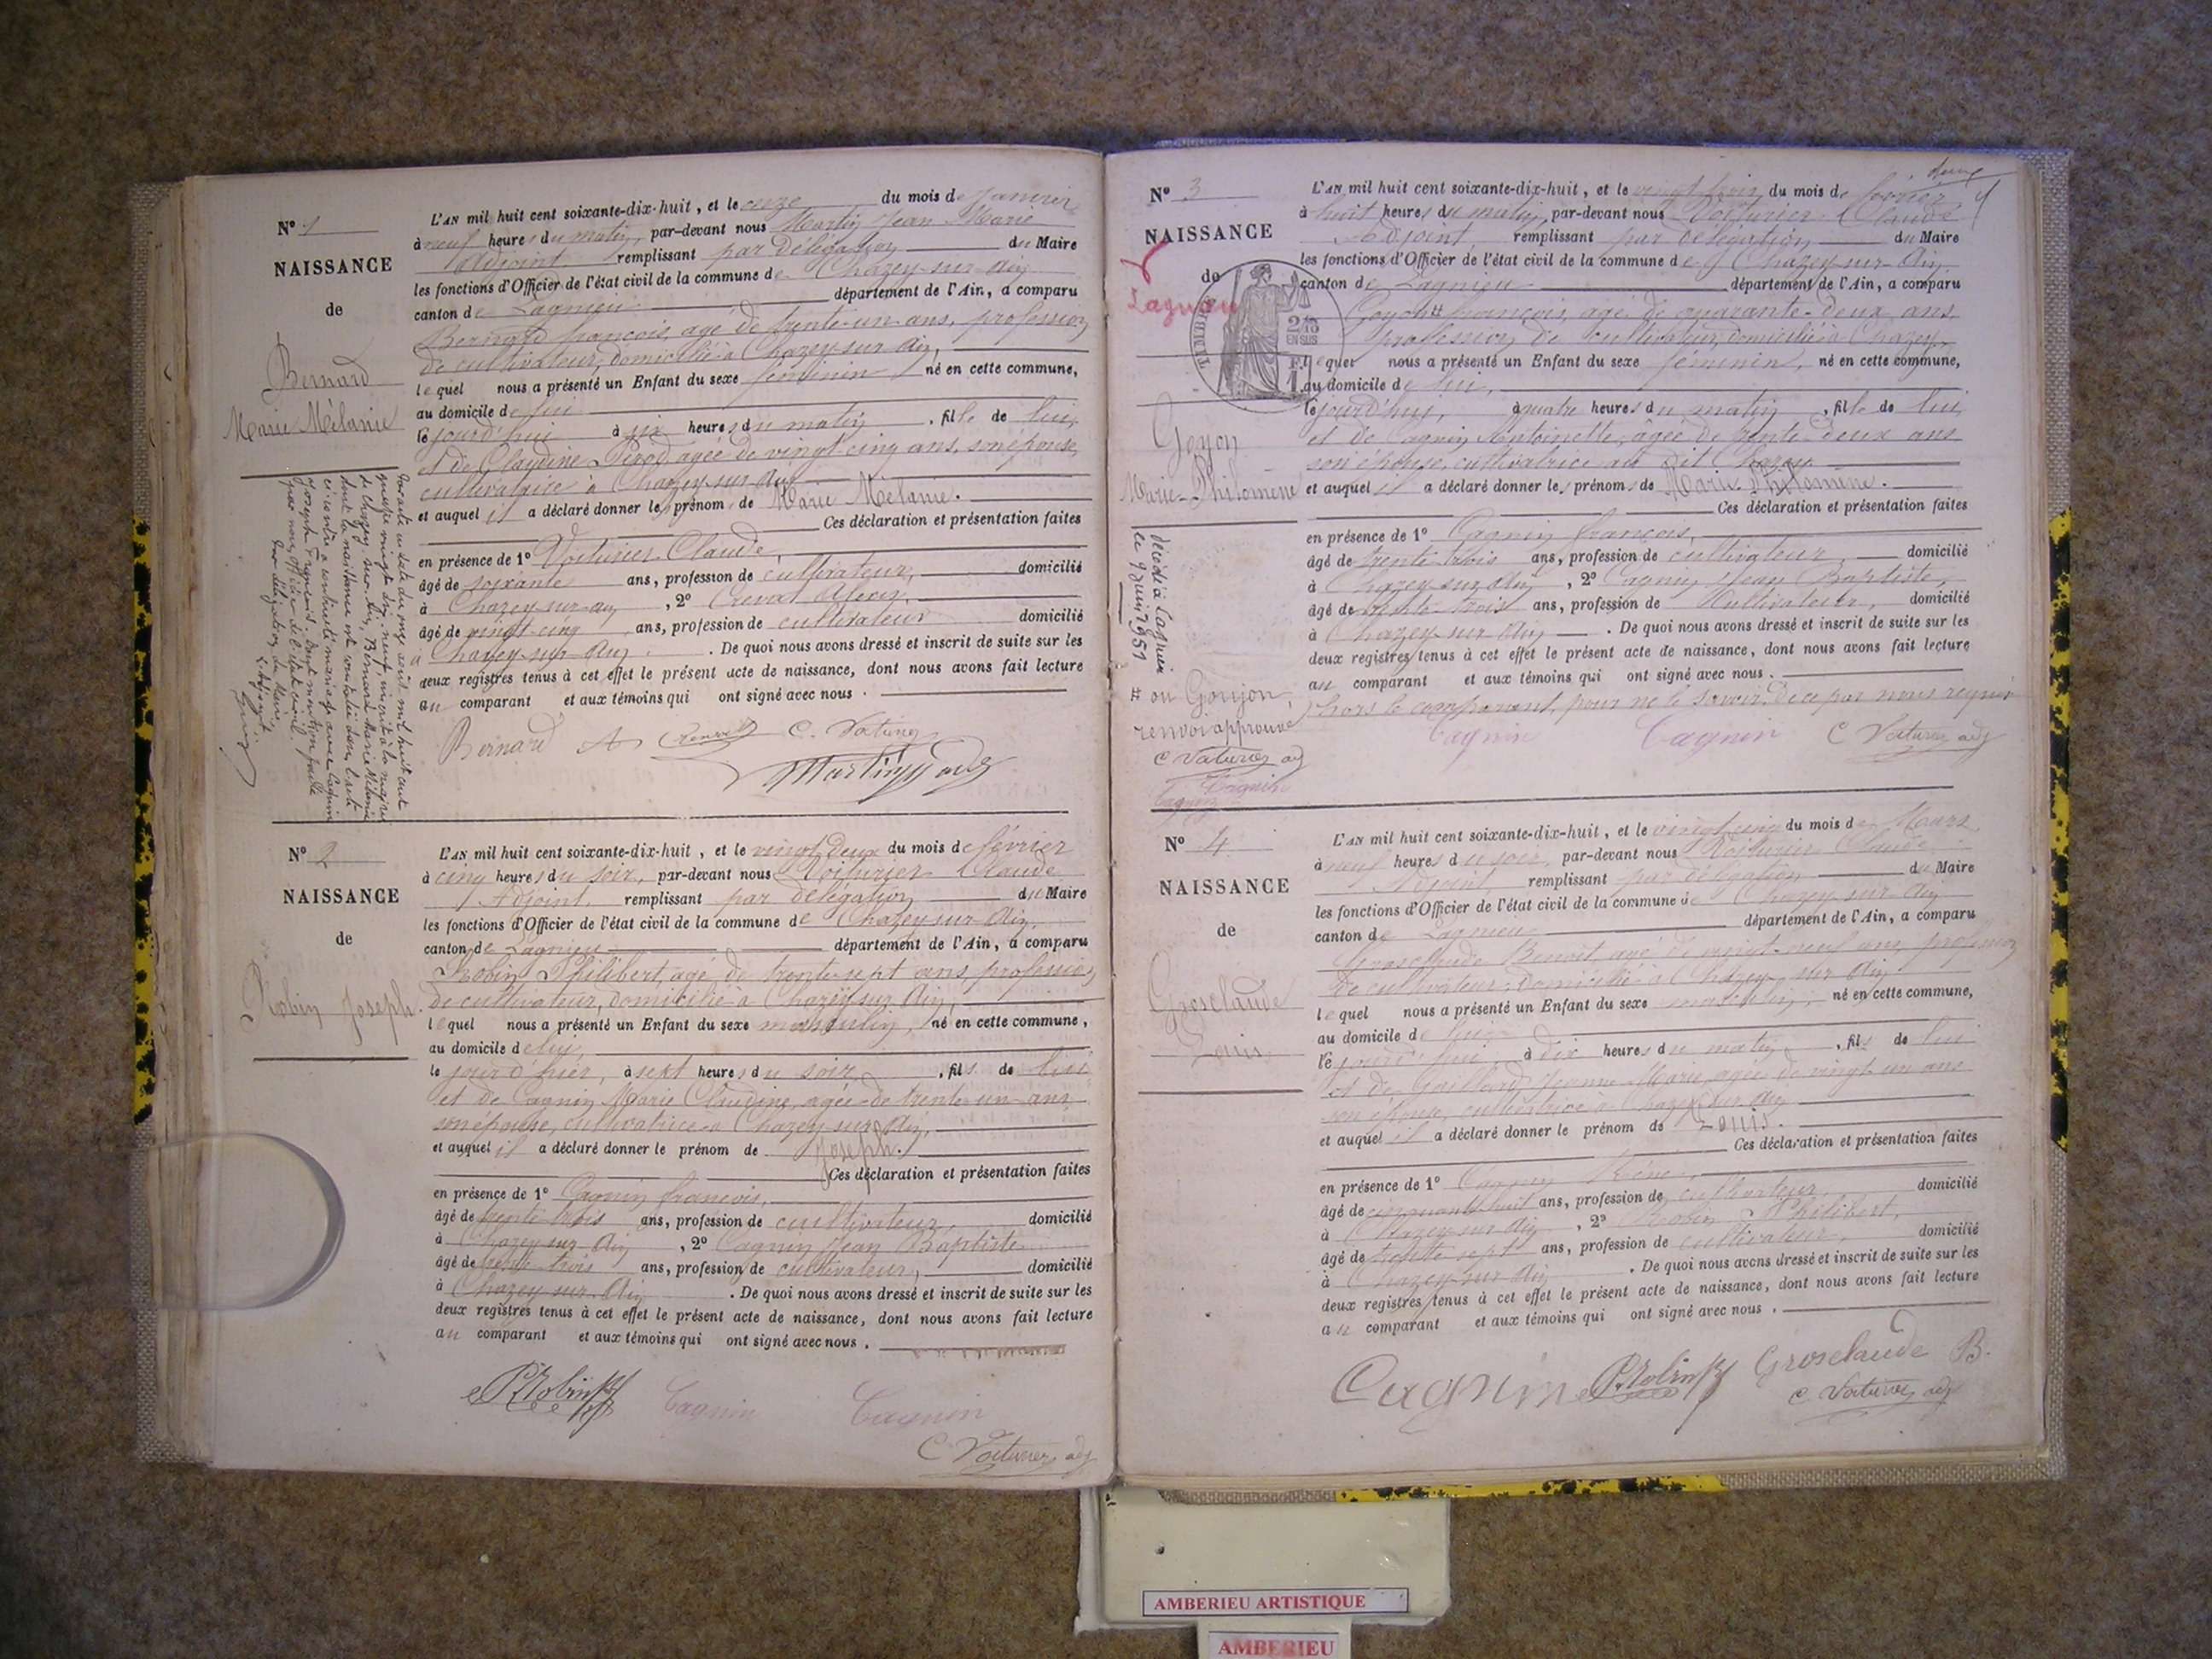 Nº 1
NAISSANCE
de
Bernard
Marie Mélanie
L'AN mil huit cent soixante-dix-huit, et le onze du mois de Janvier
à neuf heures du matin, par-devant nous Martin Jean Marie
adjoint remplissant par délégation du Maire
les fonctions d'Officier de l'état civil de la commune de Chazey-sur-Ain
canton de Lagnieu département de l'Ain, a comparu
Bernard françois, agé de trente-un ans, profession
de cultivateur, domicilié à Chazey-sur-Ain,
lequel nous a présenté un Enfant du sexe féminin né en cette commune,
au domicile de lui
le jourd'hui à six heures du matin, fille de lui,
et de Claudine Pérod, agée de vingt-cinq ans, son épouse,
cultivatrice à Chazey-sur-Ain
et auquel il a déclaré donner les prénoms de Marie Mélanie.
Ces déclaration et présentation faites
en présence de 1º Voiturier Claude,
âgé de soixante ans, profession de cultivateur, domicilié
à Chazey-sur-ain, 2º Crevat Alexis,
âgé de vingt-cinq ans, profession de cultivateur domicilié
à Chazey-sur-Ain. De quoi nous avons dressé et inscrit de suite sur les
deux registres tenus à cet effet le présent acte de naissance, dont nous avons fait lecture
au comparant et aux témoins qui ont signé avec nous.
Bernard A Crevat C. Voiturier
Martin adj
Nº 2
NAISSANCE
de
Robin Joseph.
L'AN mil huit cent soixante-dix-huit, et le vingt deux du mois de février
à cinq heures du soir, par-devant nous Voiturier Claude
Adjoint remplissant par délégation du Maire
les fonctions d'Officier de l'état civil de la commune de Chazey-sur-Ain,
canton de Lagnieu département de l'Ain, a comparu
Robin Philibert, agé de trente-sept ans, profession
de cultivateur, domicilié à Chazey-sur-Ain,
lequel nous a présenté un Enfant du sexe masculin, né en cette commune,
au domicile de lui,
le jour d'hier, à sept heures du soir, fils de lui
et de Cagnin Marie Claudine, agée de trente-un ans,
son épouse, cultivatrice à Chazey-sur-Ain,
et auquel il a déclaré donner le prénom de Joseph.
Ces déclaration et présentation faites
en présence de 1º Cagnin françois,
âgé de trente trois ans, profession de cultivateur, domicilié
à Chazey-sur-Ain, 2º Cagnin Jean Baptiste
âgé de trente-trois ans, profession de cultivateur, domicilié
à Chazey-sur-Ain. De quoi nous avons dressé et inscrit de suite sur les
deux registres tenus à cet effet le présent acte de naissance, dont nous avons fait lecture
au comparant et aux témoins qui ont signé avec nous.
P. Robin Cagnin Cagnin
C Voiturier adj
Nº 3
NAISSANCE
de
Lagnieu
TIMBRE
2/10 EN SUS
Goyon
Marie-Philomène
décédé à Lagnieu
le 9 juin 1951
# ou Goujon
renvoi approuvé
C Voiturier adj
Cagnin
Cagnin
L'AN mil huit cent soixante-dix-huit, et le vingt trois du mois de février
à huit heures du matin, par-devant nous Voiturier Claude
Adjoint remplissant par délégation du Maire
les fonctions d'Officier de l'état civil de la commune de Chazey-sur-Ain
canton de Lagnieu département de l'Ain, a comparu
Goyon # françois, agé de quarante-deux ans,
profession de cultivateur, domicilié à Chazey
lequel nous a présenté un Enfant du sexe féminin, né en cette commune,
au domicile de lui,
le jourd'hui, à quatre heures du matin, fille de lui
et de Cagnin Antoinette, âgée de trente-deux ans
son épouse, cultivatrice au dit Chazey
et auquel il a déclaré donner les prénoms de Marie Philomène.
Ces déclaration et présentation faites
en présence de 1º Cagnin françois,
âgé de trente-trois ans, profession de cultivateur, domicilié
à Chazey-sur-Ain, 2º Cagnin Jean Baptiste,
âgé de trente-trois ans, profession de Cultivateur, domicilié
à Chazey-sur-Ain. De quoi nous avons dressé et inscrit de suite sur les
deux registres tenus à cet effet le présent acte de naissance, dont nous avons fait lecture
au comparant et aux témoins qui ont signé avec nous.
hors le comparant, pour ne le savoir, de ce par nous requis
Cagnin Cagnin C Voiturier adj
Nº 4
NAISSANCE
de
Groselaude
Louis
L'AN mil huit cent soixante-dix-huit, et le vingt cinq du mois de Mars
à neuf heures du soir, par-devant nous Voiturier Claude
Adjoint remplissant par délégation du Maire
les fonctions d'Officier de l'état civil de la commune de Chazey-sur-Ain
canton de Lagnieu département de l'Ain, a comparu
Groselaude Benoit, agé de vingt-neuf ans, profession
de cultivateur, domicilié à Chazey-sur-Ain
lequel nous a présenté un Enfant du sexe masculin, né en cette commune,
au domicile de lui
le jourd'hui, à dix heures du matin, fils de lui
et de Gaillard Jeanne Marie, agée de vingt un ans
son épouse, cultivatrice à Chazey-sur-Ain
et auquel il a déclaré donner le prénom de Louis.
Ces déclaration et présentation faites
en présence de 1º Cagnin
âgé de cinquante huit ans, profession de cultivateur, domicilié
à Chazey-sur-Ain, 2º Robin Philibert,
âgé de trente sept ans, profession de cultivateur, domicilié
à Chazey-sur-Ain. De quoi nous avons dressé et inscrit de suite sur les
deux registres tenus à cet effet le présent acte de naissance, dont nous avons fait lecture
au comparant et aux témoins qui ont signé avec nous.
Cagnin P. Robin Groselaude B.
C Voiturier adj
AMBERIEU ARTISTIQUE
AMBERIEU